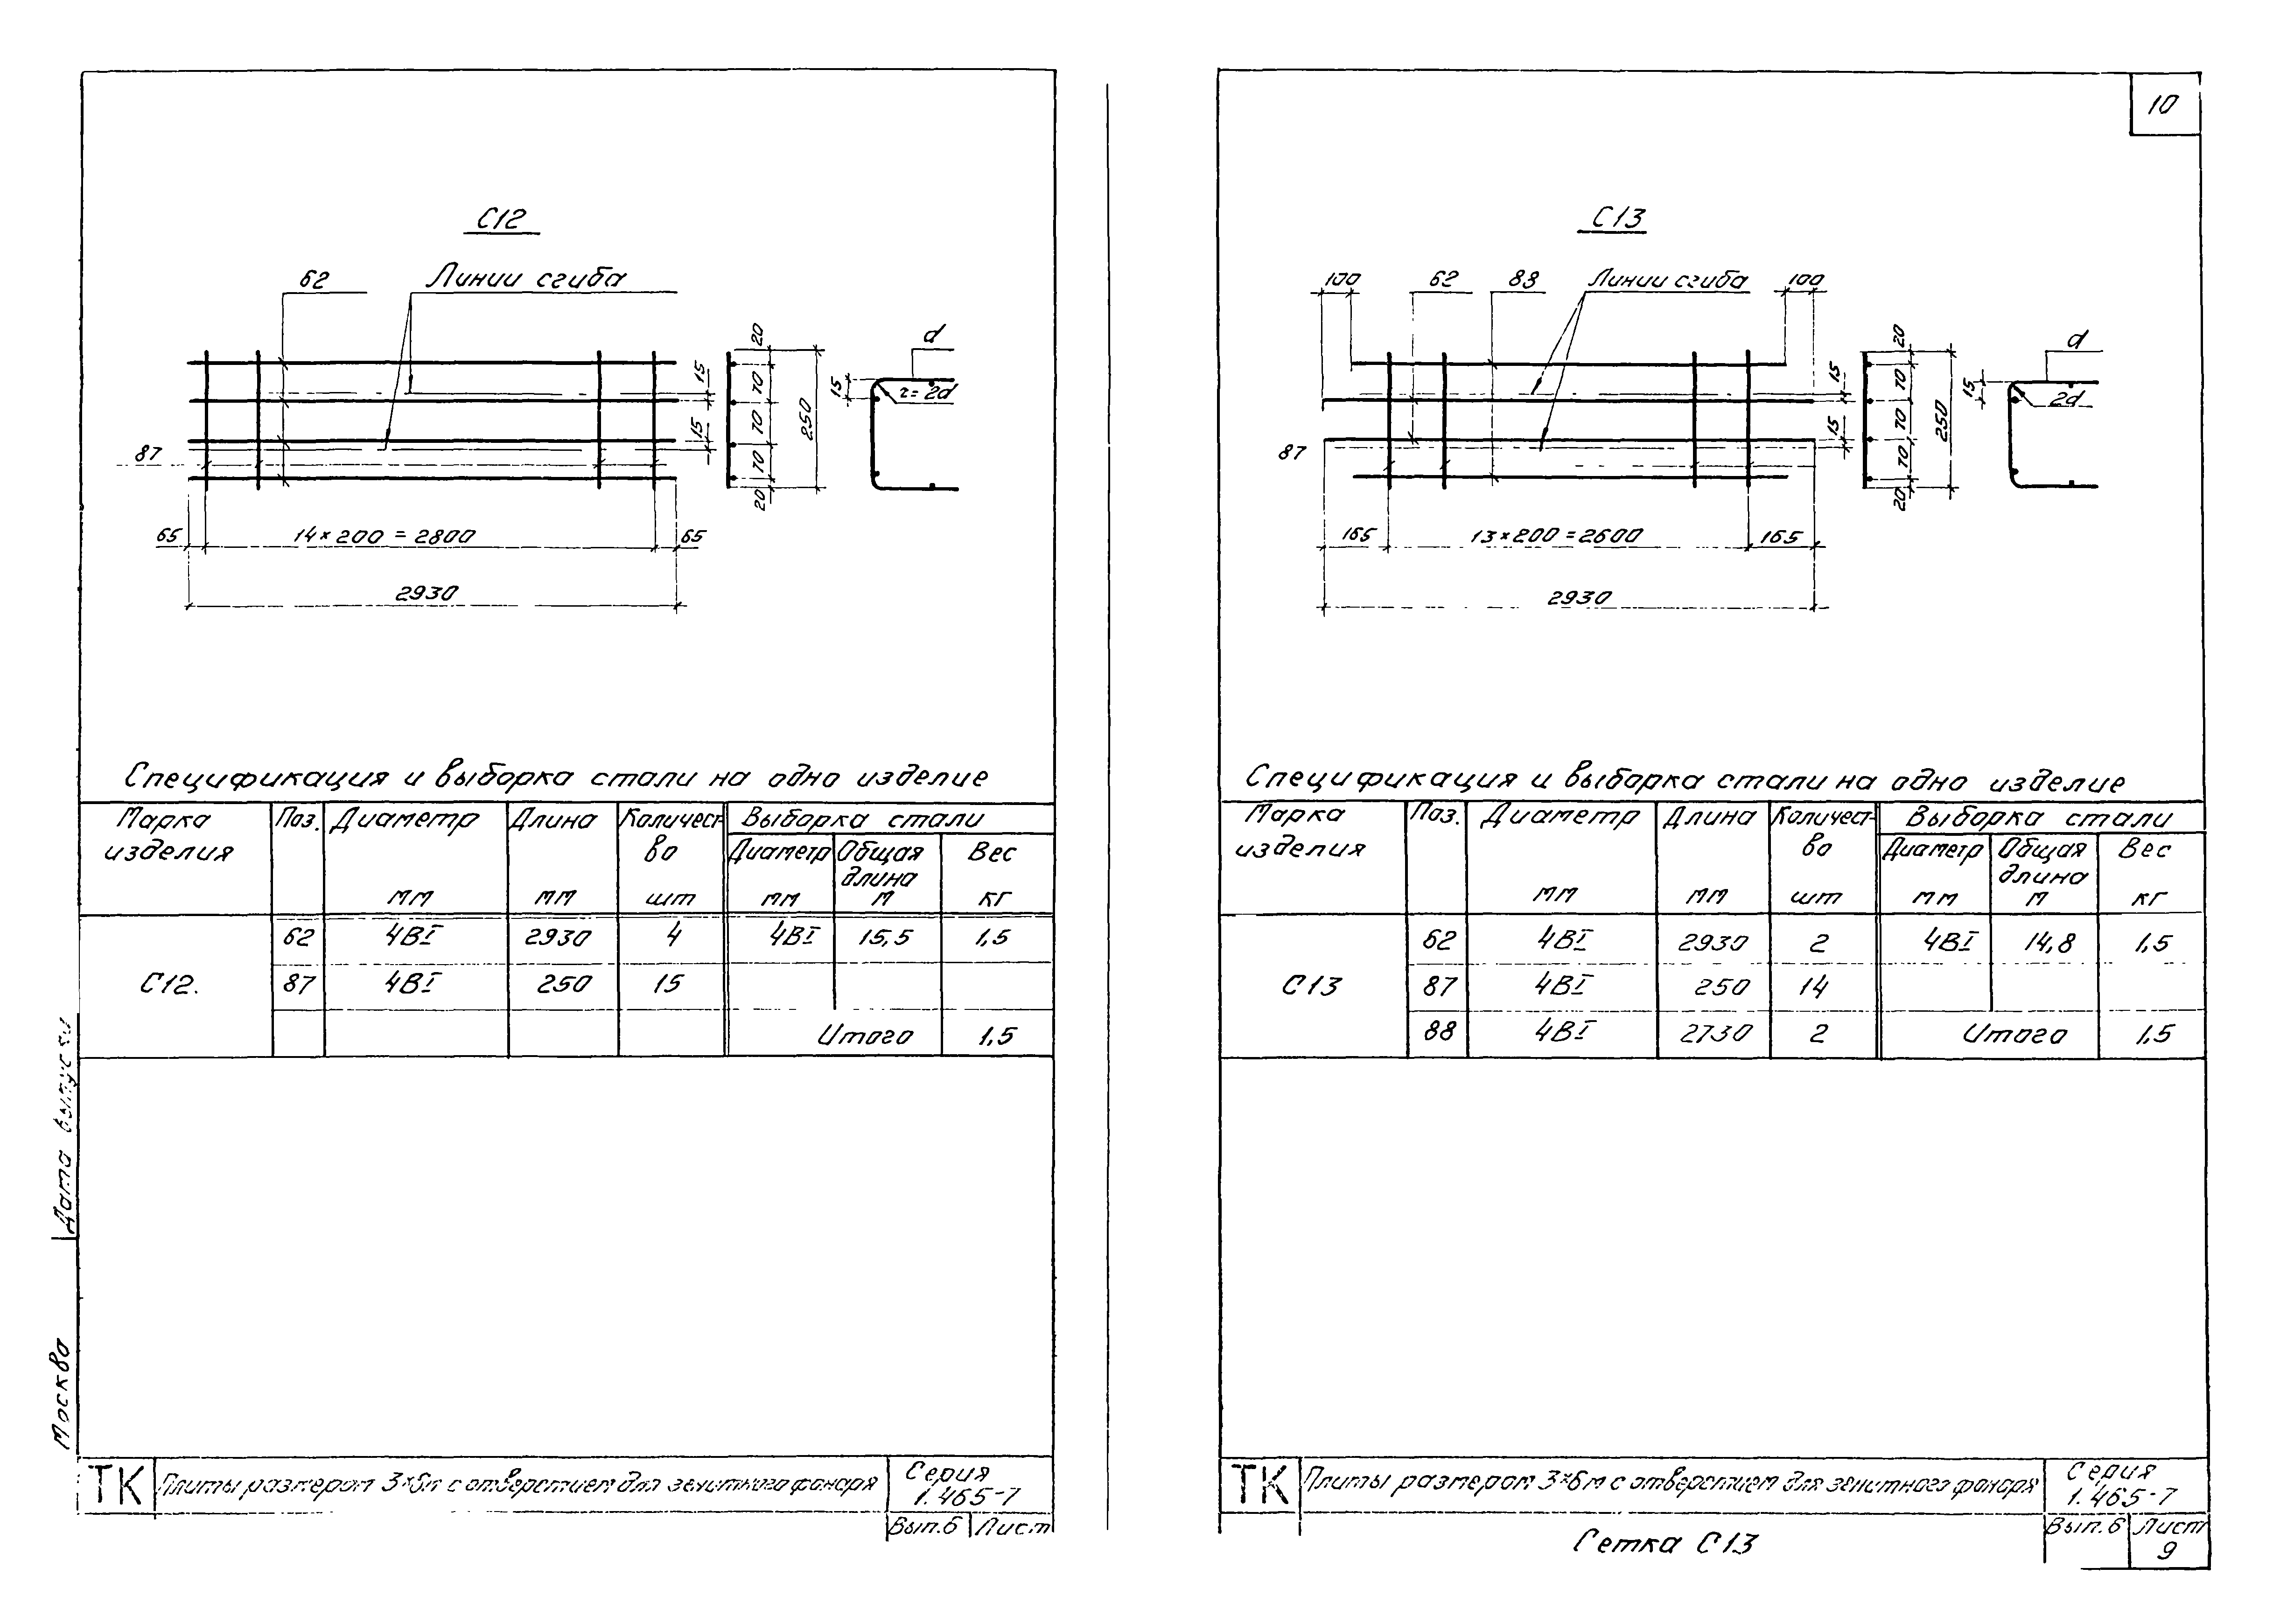 С12
62
Линии сгиба
20
d
15
70
15
r=2d
15
70
250
87
70
20
65
14×200=2800
65
2930
Спецификация и выборка стали на одно изделие
Марка изделия Поз. Диаметр мм Длина мм Количест-во шт Выборка стали
Диаметр мм Общая длина м Вес кг
С12. 62 4ВI 2930 4 4ВI 15,5 1,5
87 4ВI 250 15
Итого 1,5
Дата выпуска
Москва
ТК Плиты размером 3×6м с отверстием для зенитного фонаря Серия
1.465-7
Вып.6 Лист
10
С13
100
62
88
Линии сгиба
100
20
d
15
70
15
2d
15
70
250
87
70
20
165
13×200=2600
165
2930
Спецификация и выборка стали на одно изделие
Марка изделия Поз. Диаметр мм Длина мм Количест-во шт Выборка стали
Диаметр мм Общая длина м Вес кг
С13 62 4ВI 2930 2 4ВI 14,8 1,5
87 4ВI 250 14
88 4ВI 2730 2 Итого 1,5
ТК Плиты размером 3×6м с отверстием для зенитного фонаря Серия
1.465-7
Сетка С13
Вып.6 Лист
9